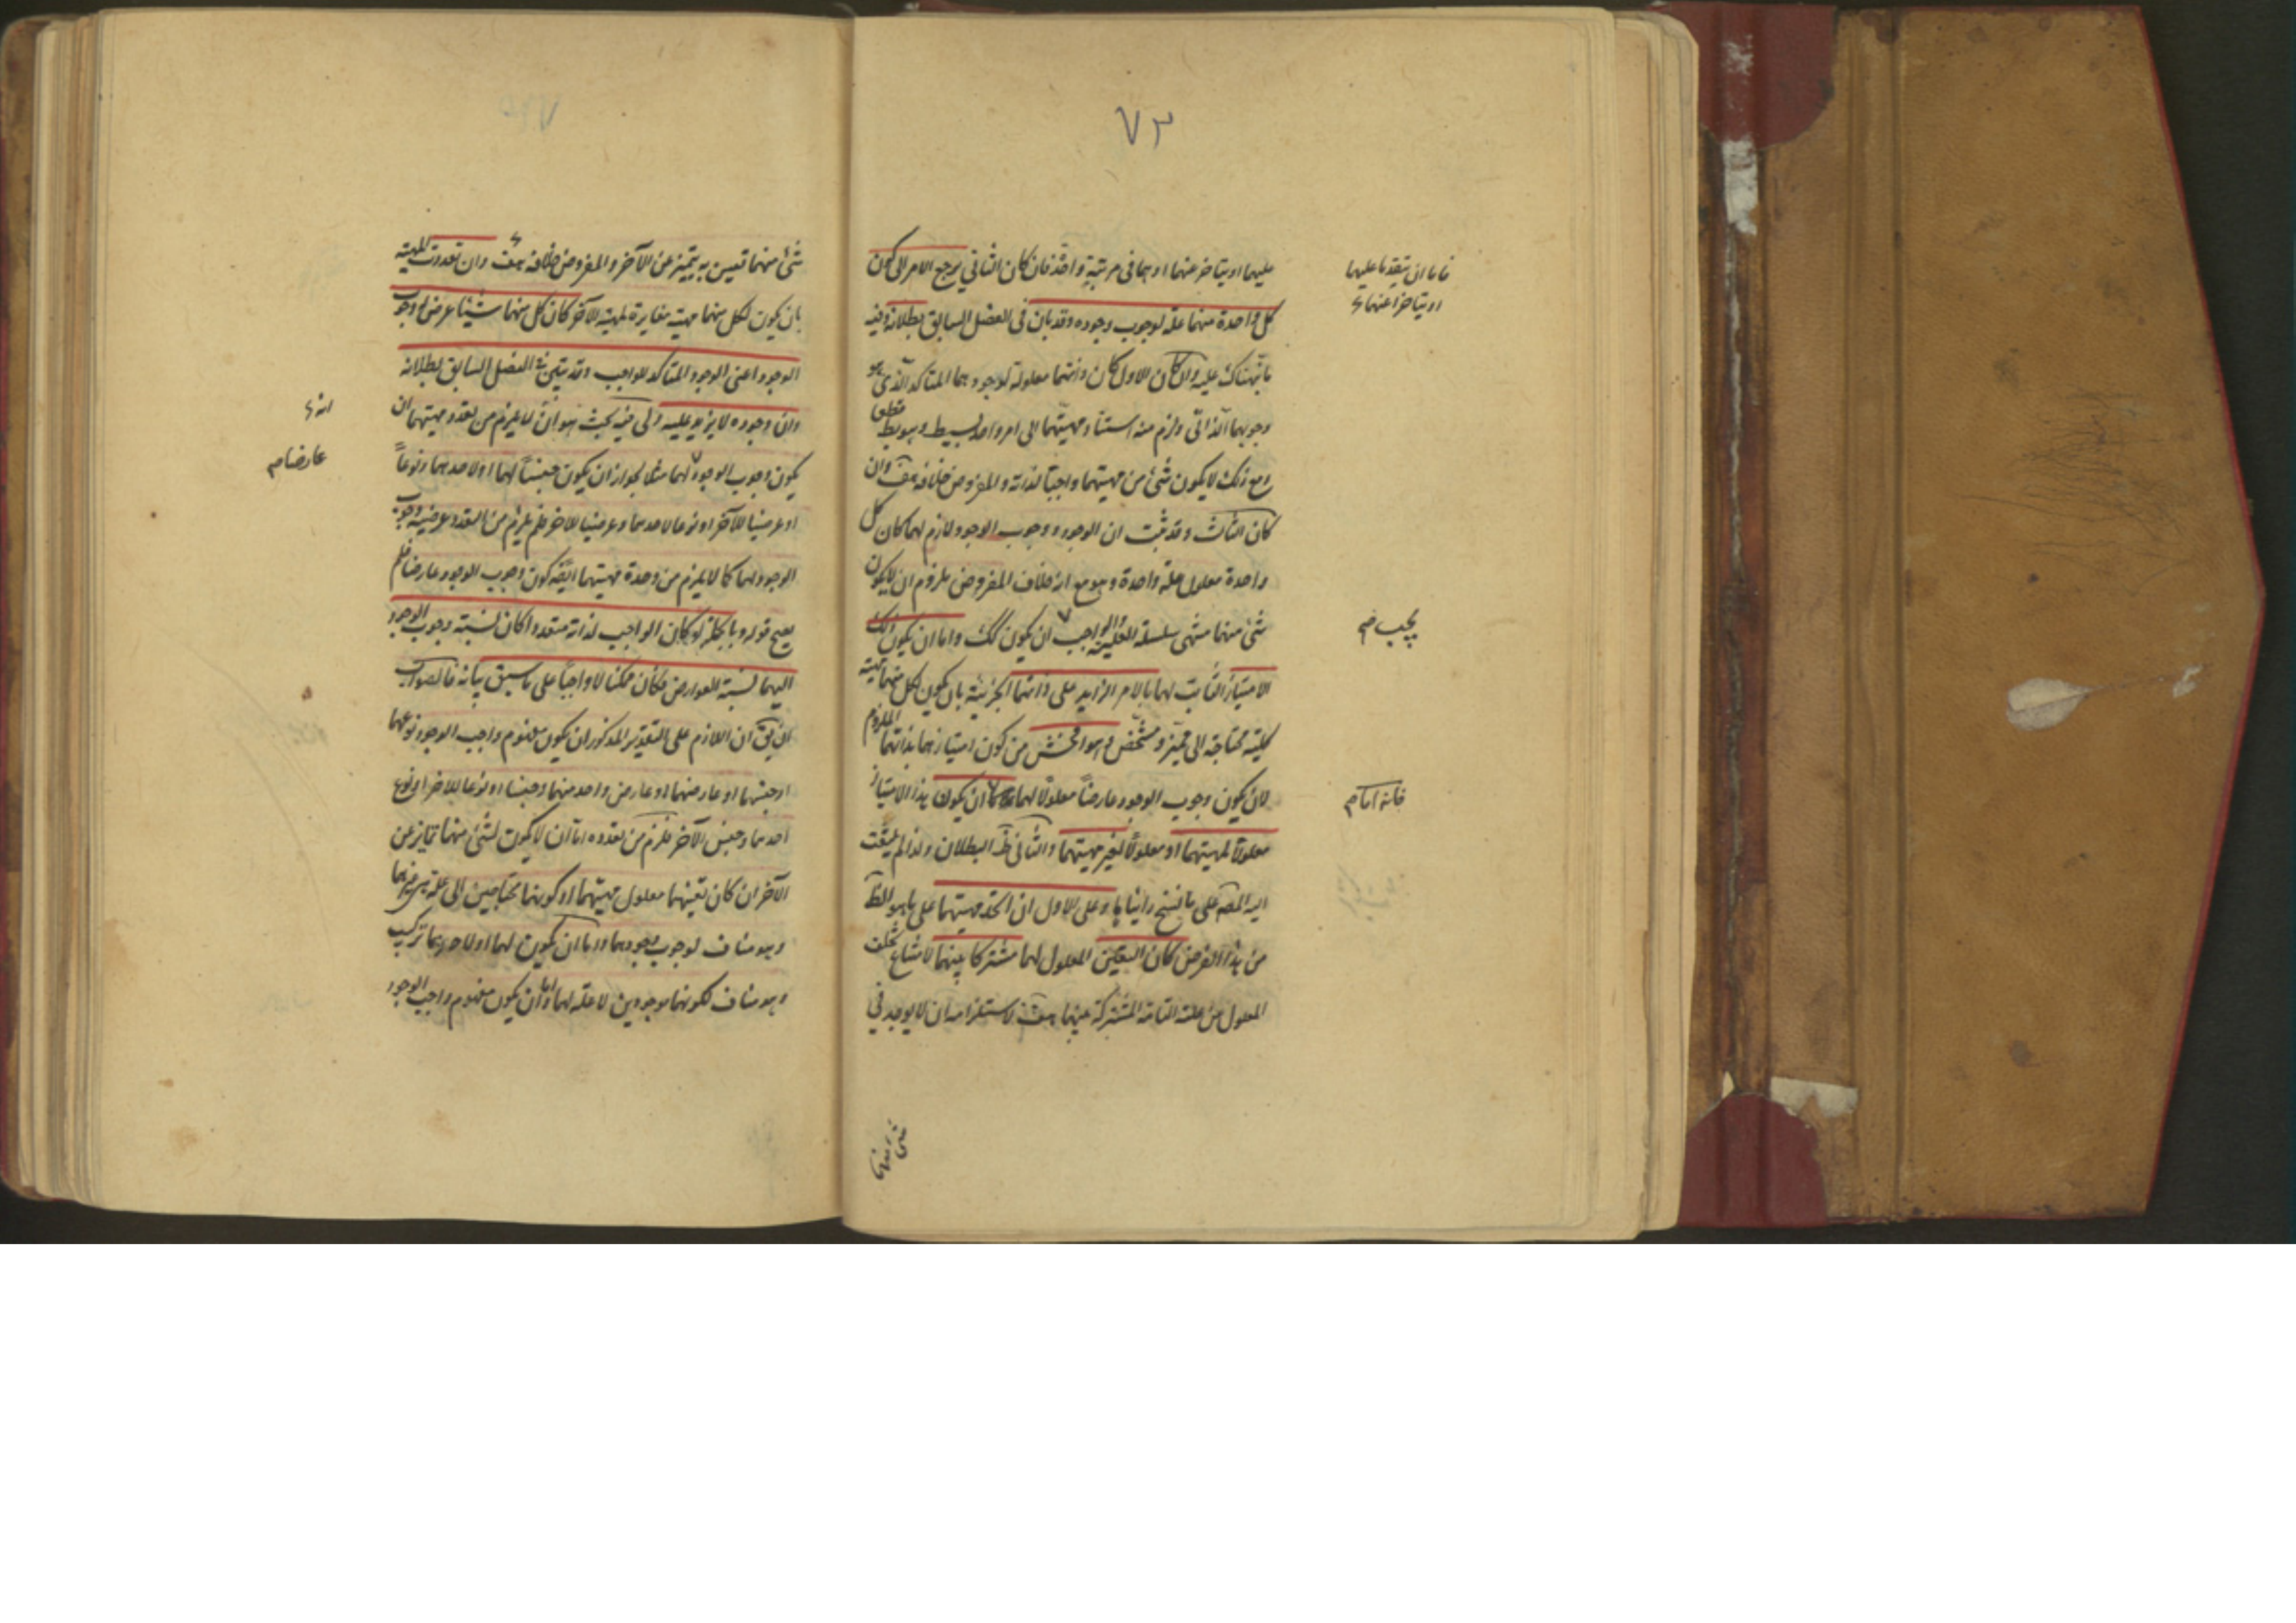 ٧٣
عليهما او يتاخر عنهما او هما فى مرتبة واحدة فان كان الثاني يرجع الامر الى كون
كل واحدة منهما علة لوجوب وجوده وقد بان فى الفصل السابق بطلانه وفيه
ما نبهناك عليه وان كان الاول كان ذاتهما معلولة لوجودهما المتاكد الذى هو
وجوبهما الذاتى ولزم منه استناد مهيتهما الى امر واحد بسيط وهو بط قطعا
ومع ذلك لا يكون شئ من مهيتهما واجبا لذاته والمفروض خلافه هف وان
كان الثالث وقد ثبت ان الوجود ووجوب الوجود لازم لهما كان كل
واحدة معلول علة واحدة وهو مع انه خلاف المفروض ملزوم ان لا يكون
شئ منهما منتهى سلسلة العلية والواجب ان يكون كك واما ان يكون ذلك
الامتياز الثابت لهما بالامر الزايد على ذاتهما الجزئية بان يكون لكل منهما مهية
كلية محتاجة الى مميز ومشخص وهو افحش من كون امتيازهما بذاتهما الملزوم
لان يكون وجوب الوجود عارضا معلولا لهما ان يكون هذا الامتياز
معلولا لمهيتهما او معلولا لغير مهيتهما والثانى ظ البطلان ولذا لم يلتفت
اليه المصه على ما نسخ راينا ها وعلى الاول ان اتحد مهيتهما على ما هو الظ
من هذا الفرض كان التعين المعلول لهما مشتركا بينهما لامتناع تخلف
المعلول عن علته التامة المشتركة بينهما هف لاستلزامه ان لا يوجد في
فاما ان يتقدما عليهما
او يتاخرا عنهما
يجب صح
فانه اما م
شئ منهما
شئ منهما تعين به يتميز عن الآخر والمفروض خلافه هف وان تعددت المهية
بان يكون لكل منهما مهية مغايرة لمهية الآخر كان كل منهما شيئا عرض له وجوب
الوجود اعنى الوجود المتاكد للواجب وقد تبين فى الفصل السابق بطلانه
وان وجوده لا يزيد عليه ولى فيه بحث هو ان لا يلزم من تعدد مهيتهما ان
يكون وجوب الوجود لهما مثلا لجواز ان يكون جنسا لهما او لاحدهما ونوعا
او عرضيا للآخر او نوعا لاحدهما وعرضيا للآخر فلم يلزم من التعدد عرضية وجوب
الوجود لهما كما لا يلزم من وحدة مهيتهما ايضه كون وجوب الوجود عارضا فلم
يصح قوله وبالجملة لو كان الواجب لذاته متعددا كان نسبة وجوب الوجود
اليهما نسبة العوارض فكان ممكنا لا واجبا على ما سبق بيانه فالصواب
ان يق ان اللازم على التقدير المذكور ان يكون مفهوم واجب الوجود نوعهما
او جنسهما او عارضهما او عارض واحد منهما وجنسا او نوعا للاخر او نوع
احدهما وجنس الآخر فلزم من تعدده اما ان لا يكون لشئ منهما تمايز عن
الآخر ان كان تعينهما معلول مهيتهما او كونهما محتاجين الى علة غيرهما
وهو مناف لوجوب وجودهما واما ان يكون لهما او لاحدهما تركيب
وهو مناف لكونهما موجودين لا علة لهما واما ان يكون مفهوم واجب الوجود
انه
عارضا م